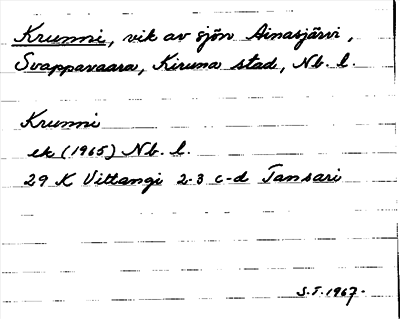 Krunni, vik av sjön Ainasjärvi,
Svappavaara, Kiruna stad, Nb. l.
Krunni
ek (1965) Nb. l.
29 K Vittangi 2-3 c-d Tansari
S.F. 1967.